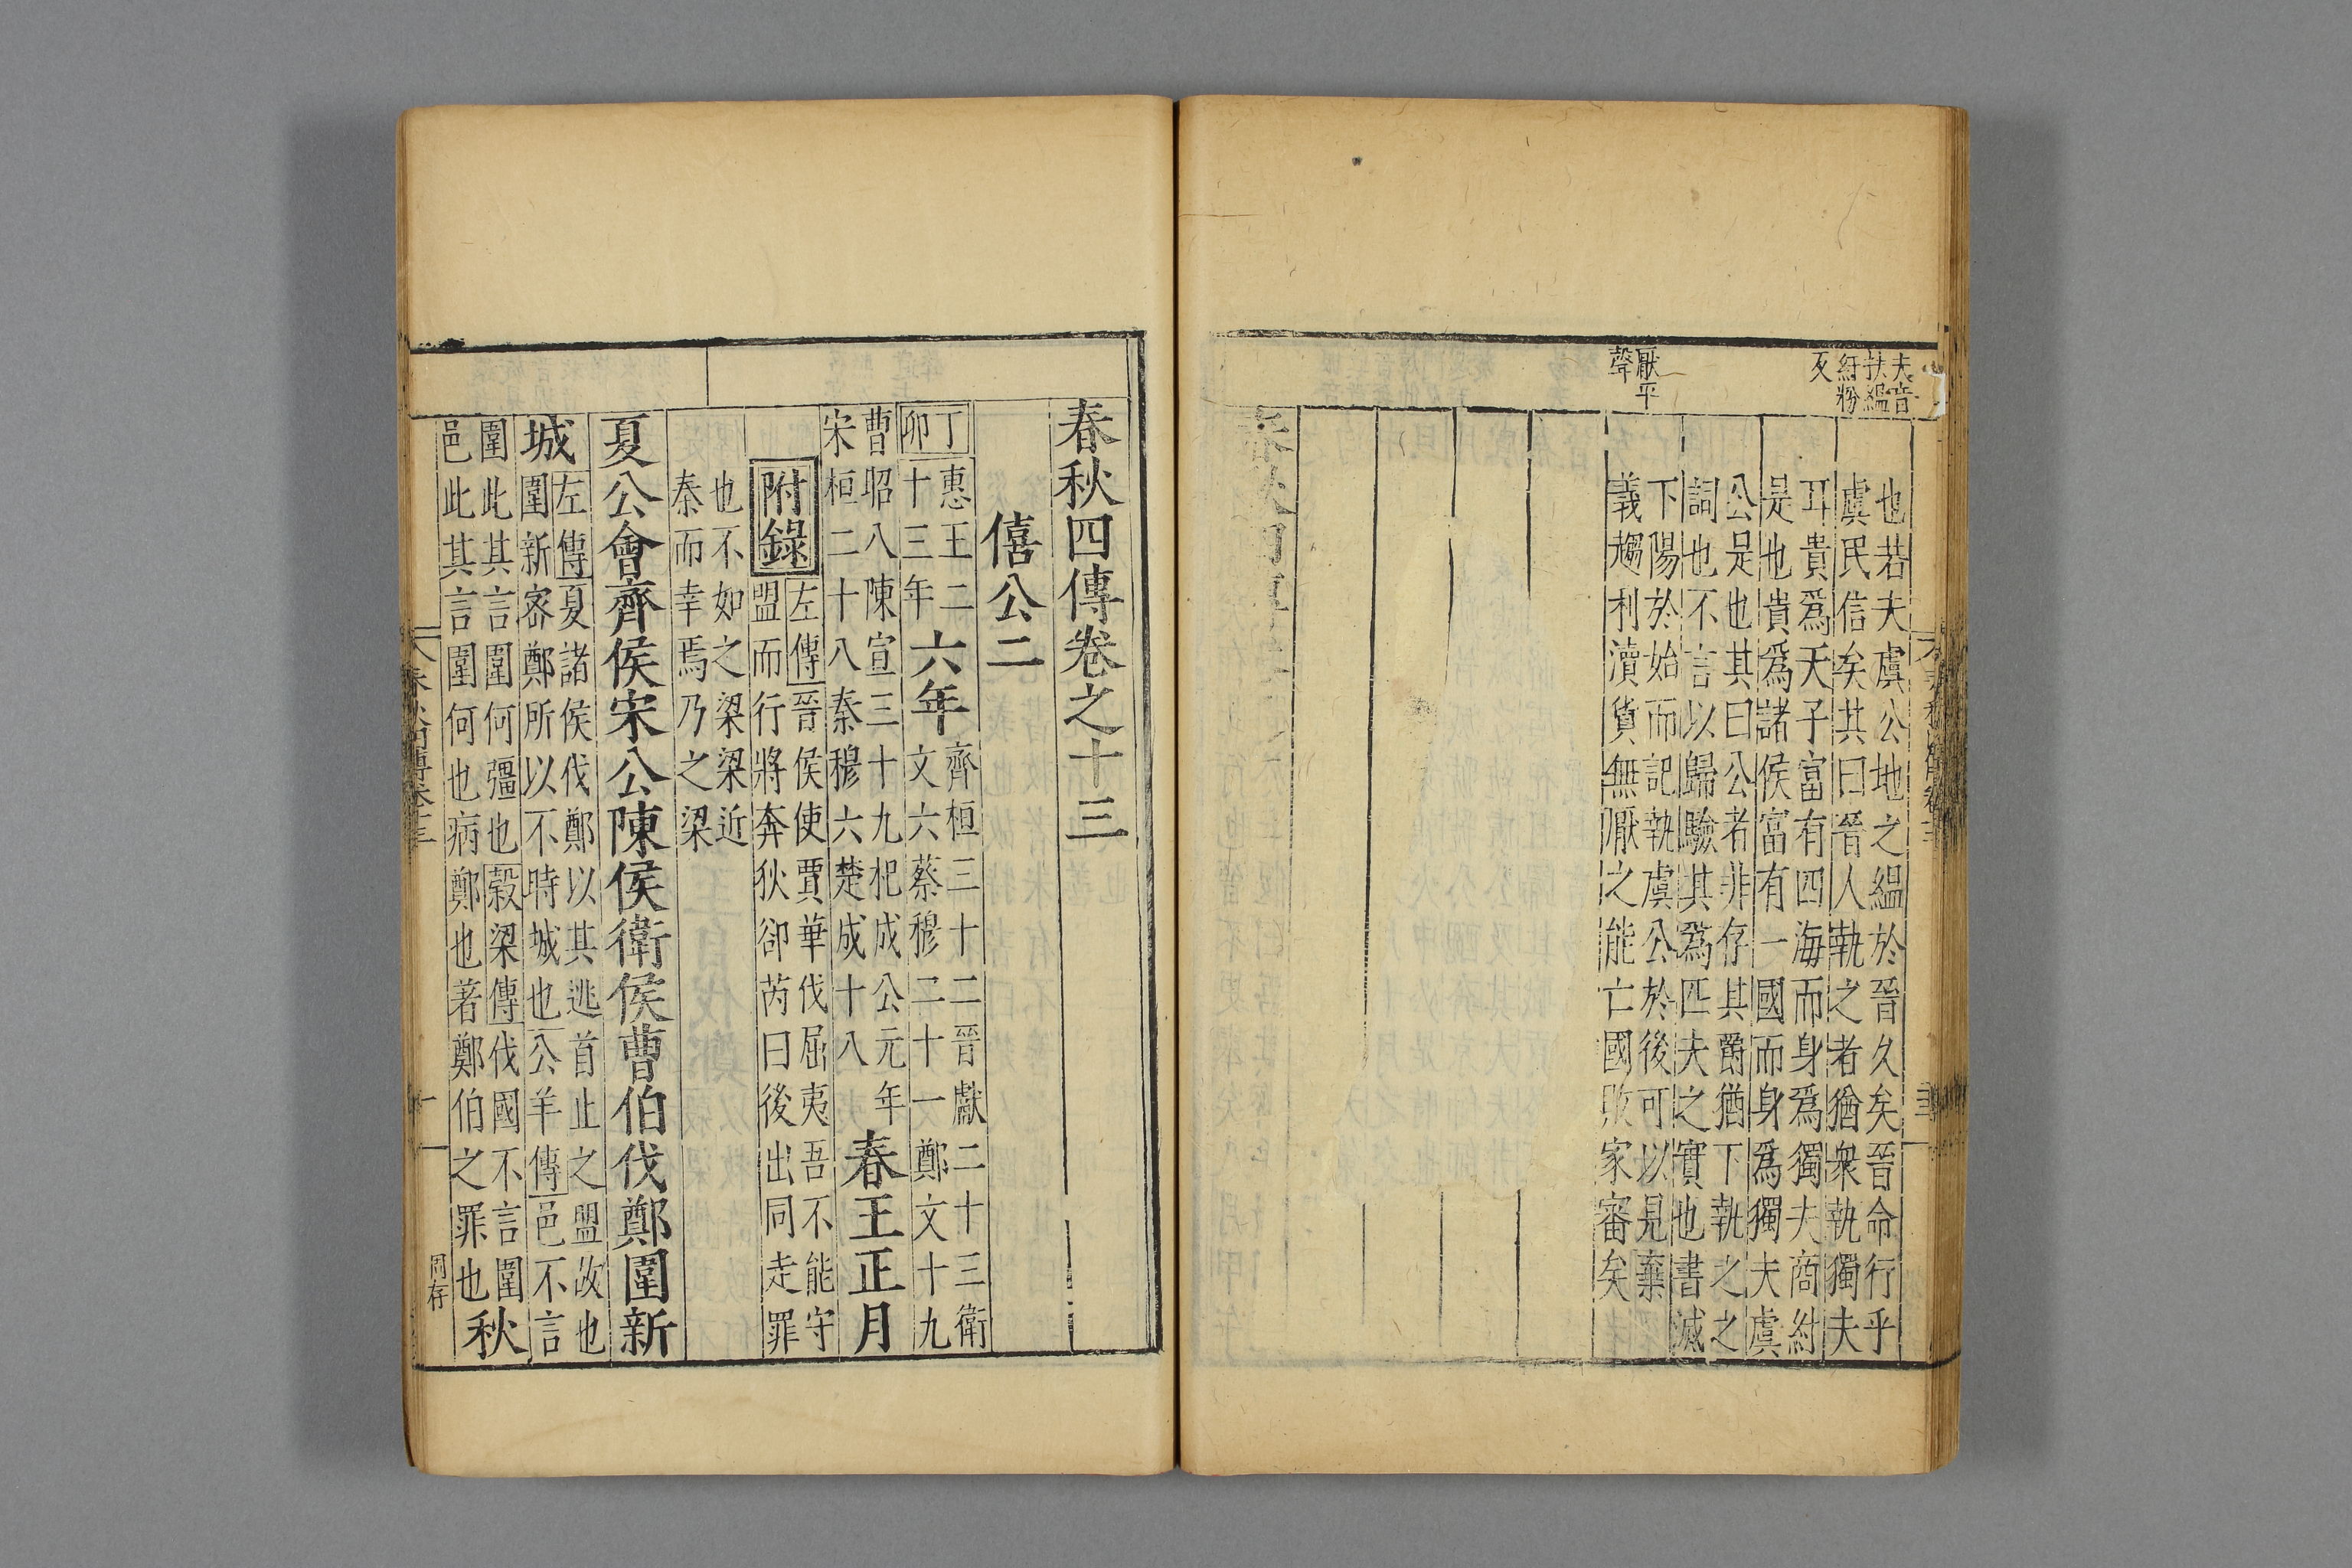 夫音
扶緼
紆粉
反
厭平
聲
也若夫虞公地之緼於晉久矣晉命行乎
虞民信矣其曰晉人執之者猶衆執獨夫
耳貴爲天子富有四海而身爲獨夫商紂
是也貴爲諸侯富有一國而身爲獨夫虞
公是也其曰公者非存其爵猶下執之之
詞也不言以歸驗其爲匹夫之實也書滅
下陽於始而記執虞公於後可以見棄
義趨利瀆貨無厭之能亡國敗家審矣
春秋四傳卷之十三
僖公二
丁
卯
惠王二
十三年
六年
齊桓三十二晉獻二十三衛
文六蔡穆二十一鄭文十九
曹昭八陳宣三十九杞成公元年
宋桓二十八秦穆六楚成十八
春王正月
附錄
左傳晉侯使賈華伐屈夷吾不能守
盟而行將奔狄郤芮曰後出同走罪
也不如之梁梁近
秦而幸焉乃之梁
夏公會齊侯宋公陳侯衛侯曹伯伐鄭圍新
城
左傳夏諸侯伐鄭以其逃首止之盟故也
圍新密鄭所以不時城也公羊傳邑不言
圍此其言圍何彊也穀梁傳伐國不言圍
邑此其言圍何也病鄭也著鄭伯之罪也
秋